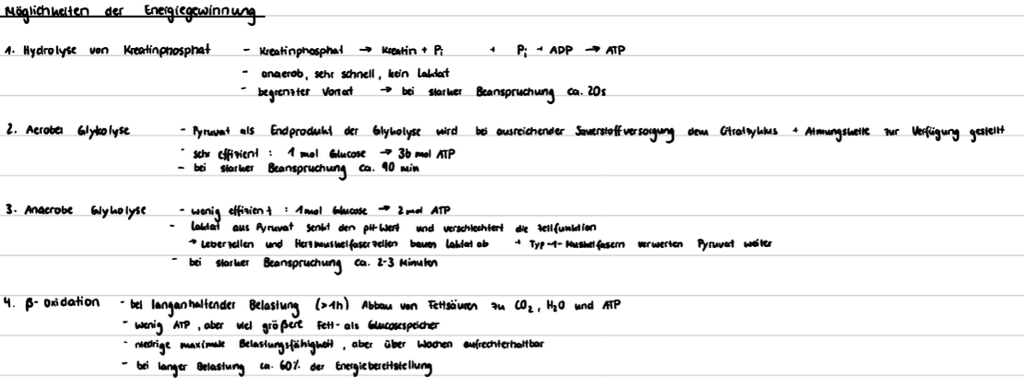 Möglichkeiten der Energiegewinnung
1. Hydrolyse von Kreatinphosphat - Kreatinphosphat → Kreatin + Pi + Pi + ADP → ATP
- anaerob, sehr schnell, kein Laktat
- begrenzter Vorrat → bei starker Beanspruchung ca. 20s
2. Aerobe Glykolyse - Pyruvat als Endprodukt der Glykolyse wird bei ausreichender Sauerstoffversorgung dem Citratzyklus + Atmungskette zur Verfügung gestellt
- sehr effizient : 1 mol Glucose → 36 mol ATP
- bei starker Beanspruchung ca. 90 min
3. Anaerobe Glykolyse - wenig effizient : 1mol Glucose → 2 mol ATP
- Laktat aus Pyruvat senkt den pH-Wert und verschlechtert die Zellfunktion
→ Leberzellen und Herzmuskelfaserzellen bauen Laktat ab + Typ-1-Muskelfasern verwerten Pyruvat weiter
- bei starker Beanspruchung ca. 2-3 Minuten
4. β-Oxidation - bei langanhaltender Belastung (>1h) Abbau von Fettsäuren zu CO₂, H₂O und ATP
- wenig ATP, aber viel größere Fett- als Glucosespeicher
- niedrige maximale Belastungsfähigkeit, aber über Wochen aufrechterhaltbar
- bei langer Belastung ca. 60% der Energiebereitstellung